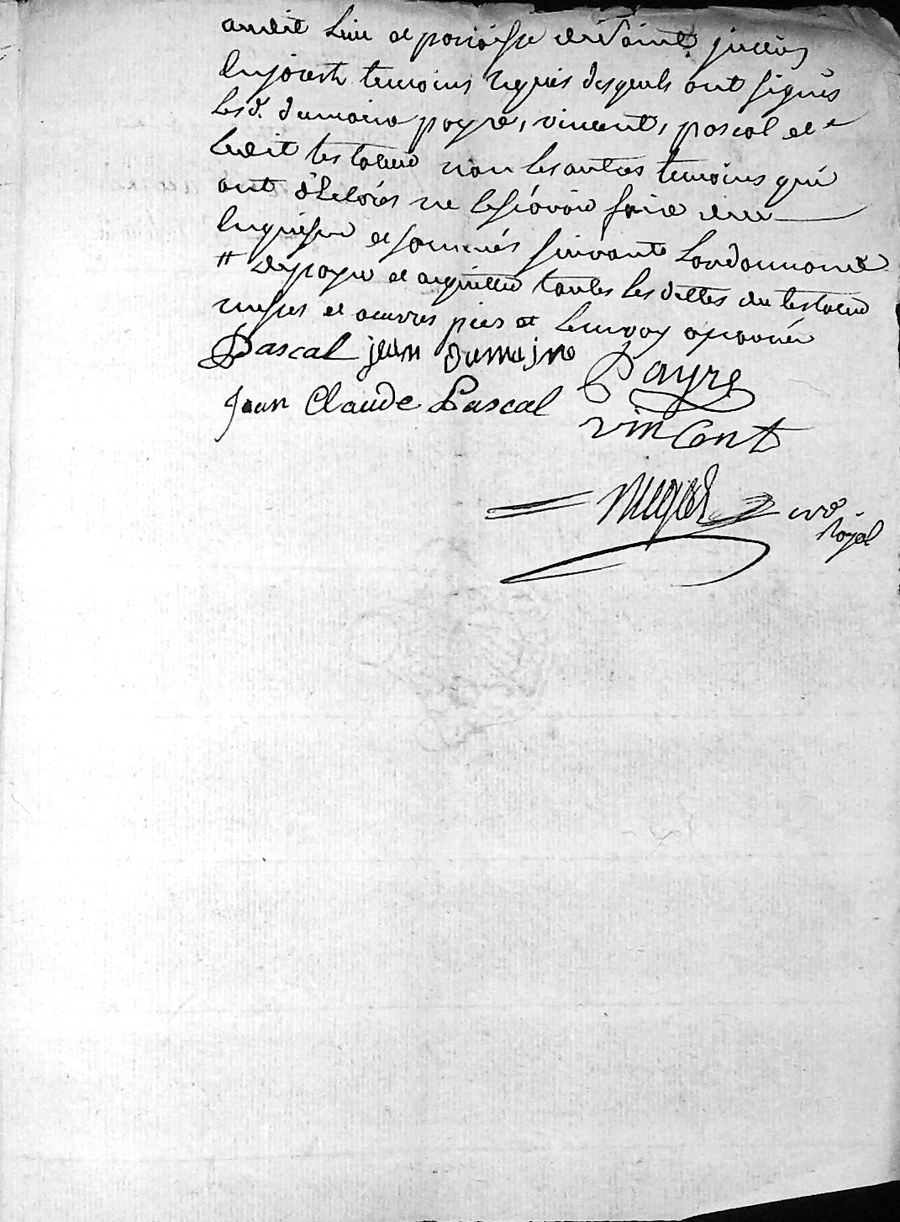 audit lieu et parroisse de Saint jullien
temoins requis desquels ont signés
lesd. dumaine payre, vincent, pascal et
ledit testateur non les autres temoins qui
ont déclarés ne le sçavoir faire de ce
enquis et sommés suivant Lordonnance
# de payer et acquitter toutes les dettes du testateur
et œuvres pies et renvoy aprouvée
Pascal jean Dumajne
Payre
Jean Claude Pascal
vincent
Royal